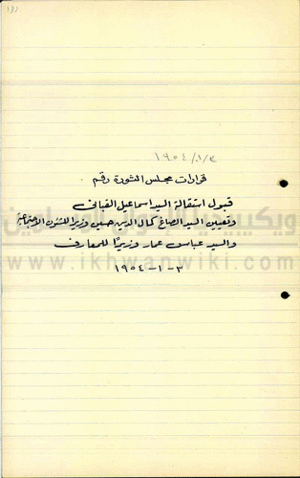 ١٩٥٤/١/٣
قرارات مجلس الثورة رقم
قبول استقالة السيد اسماعيل القبانى
وتعيين السيد الصاغ كمال الدين حسين وزيرا للشئون الاجتماعية
والسيد عباس عمار وزيرًا للمعارف
٣-١-١٩٥٤
ويكيبيديا الإخوان المسلمين
www.ikhwanwiki.com